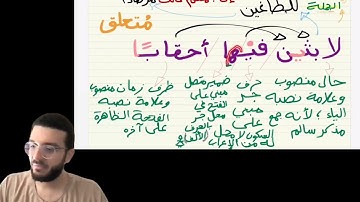 الجملة
للطاغين
مُتعلق
لابثين فيها أحقابًا
حال منصوب وعلامة نصبه الياء لأنه جمع مذكر سالم
حرف جر مبني على السكون لا محل له من الإعراب
ضمير متصل مبني على في محل جر بالحرف
ظرف زمان منصوب وعلامة نصبه الفتحة الظاهرة على آخره